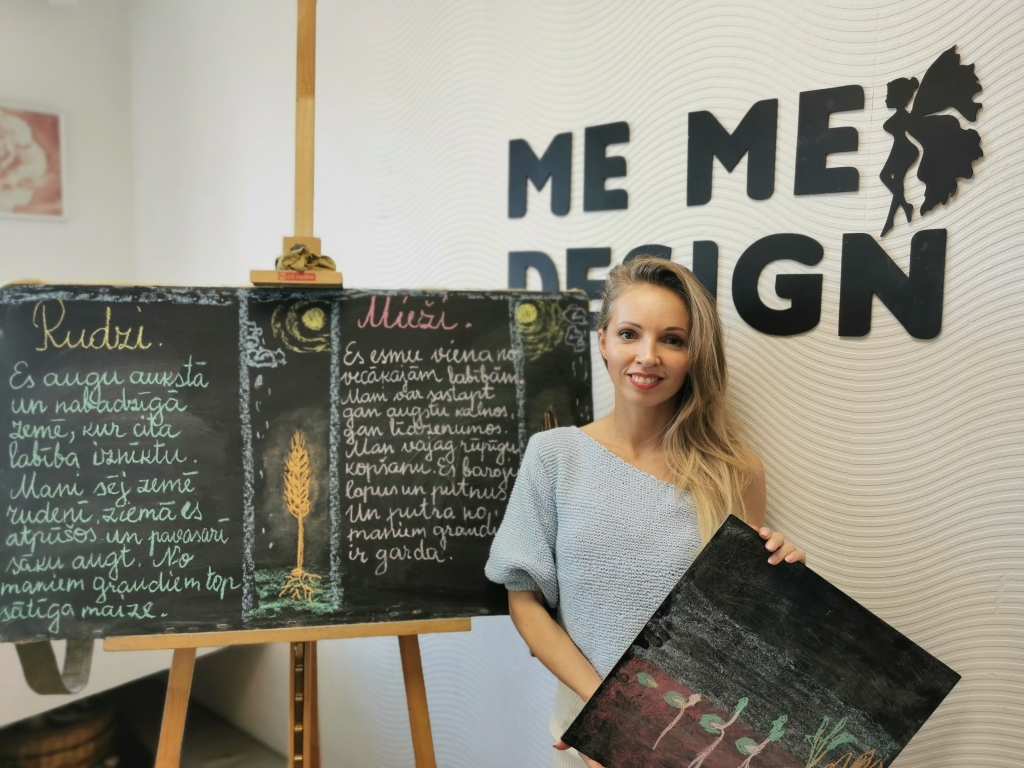 ME ME
DESIGN
Rudzi.
Es augu aukstā
un nabadzīgā
zemē, kur cita
labība iznīktu.
Mani sēj zemē
rudenī, ziemā es
atpūšos un pavasarī
sāku augt. No
maniem graudiem top
sātīga maize.
Mieži.
Es esmu viena no
vecākajām labībām.
Mani var sastapt
gan augstu kalnos,
gan līdzenumos.
Man vajag rūpīgu
kopšanu. Es baroju
lopus un putnus.
Un putra no
maniem graudiem
ir garda.